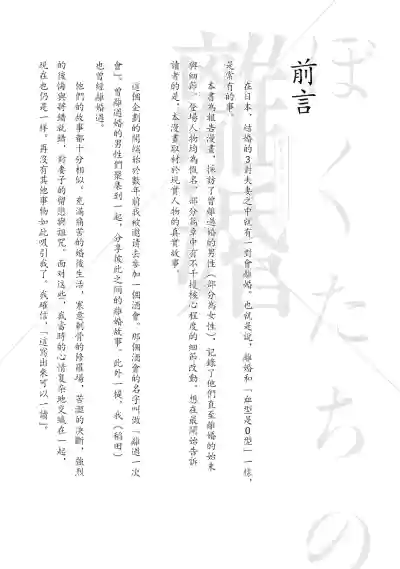 ぼくたちの
離婚
前言
在日本，結婚的3對夫妻之中就有一對會離婚。也就是說，離婚和「血型是O型」一樣，
是常有的事。
本書為報告漫畫，採訪了曾離過婚的男性（部分為女性），記錄了他們直至離婚的始末
與細節。登場人物均為假名，部分篇章中有不干擾核心程度的細節改動。想在最開始告訴
讀者的是，本漫畫取材於現實人物的真實故事。
這個企劃的開端始於數年前我被邀請去參加一個酒會。那個酒會的名字叫做「離過一次
會」。曾離過婚的男性們聚集到一起，分享彼此之間的離婚故事。此外一提，我（稻田）
也曾經離婚過。
他們的故事都十分相似。充滿痛苦的婚後生活，寒意刺骨的修羅場，苦澀的決斷，強烈
的後悔與躊躇就緒，對妻子的留戀與詛咒。面對這些，我當時的心情复杂地交織在一起，
現在也仍是一樣。再沒有其他事物如此吸引我了。我確信，「這寫出來可以一讀」。